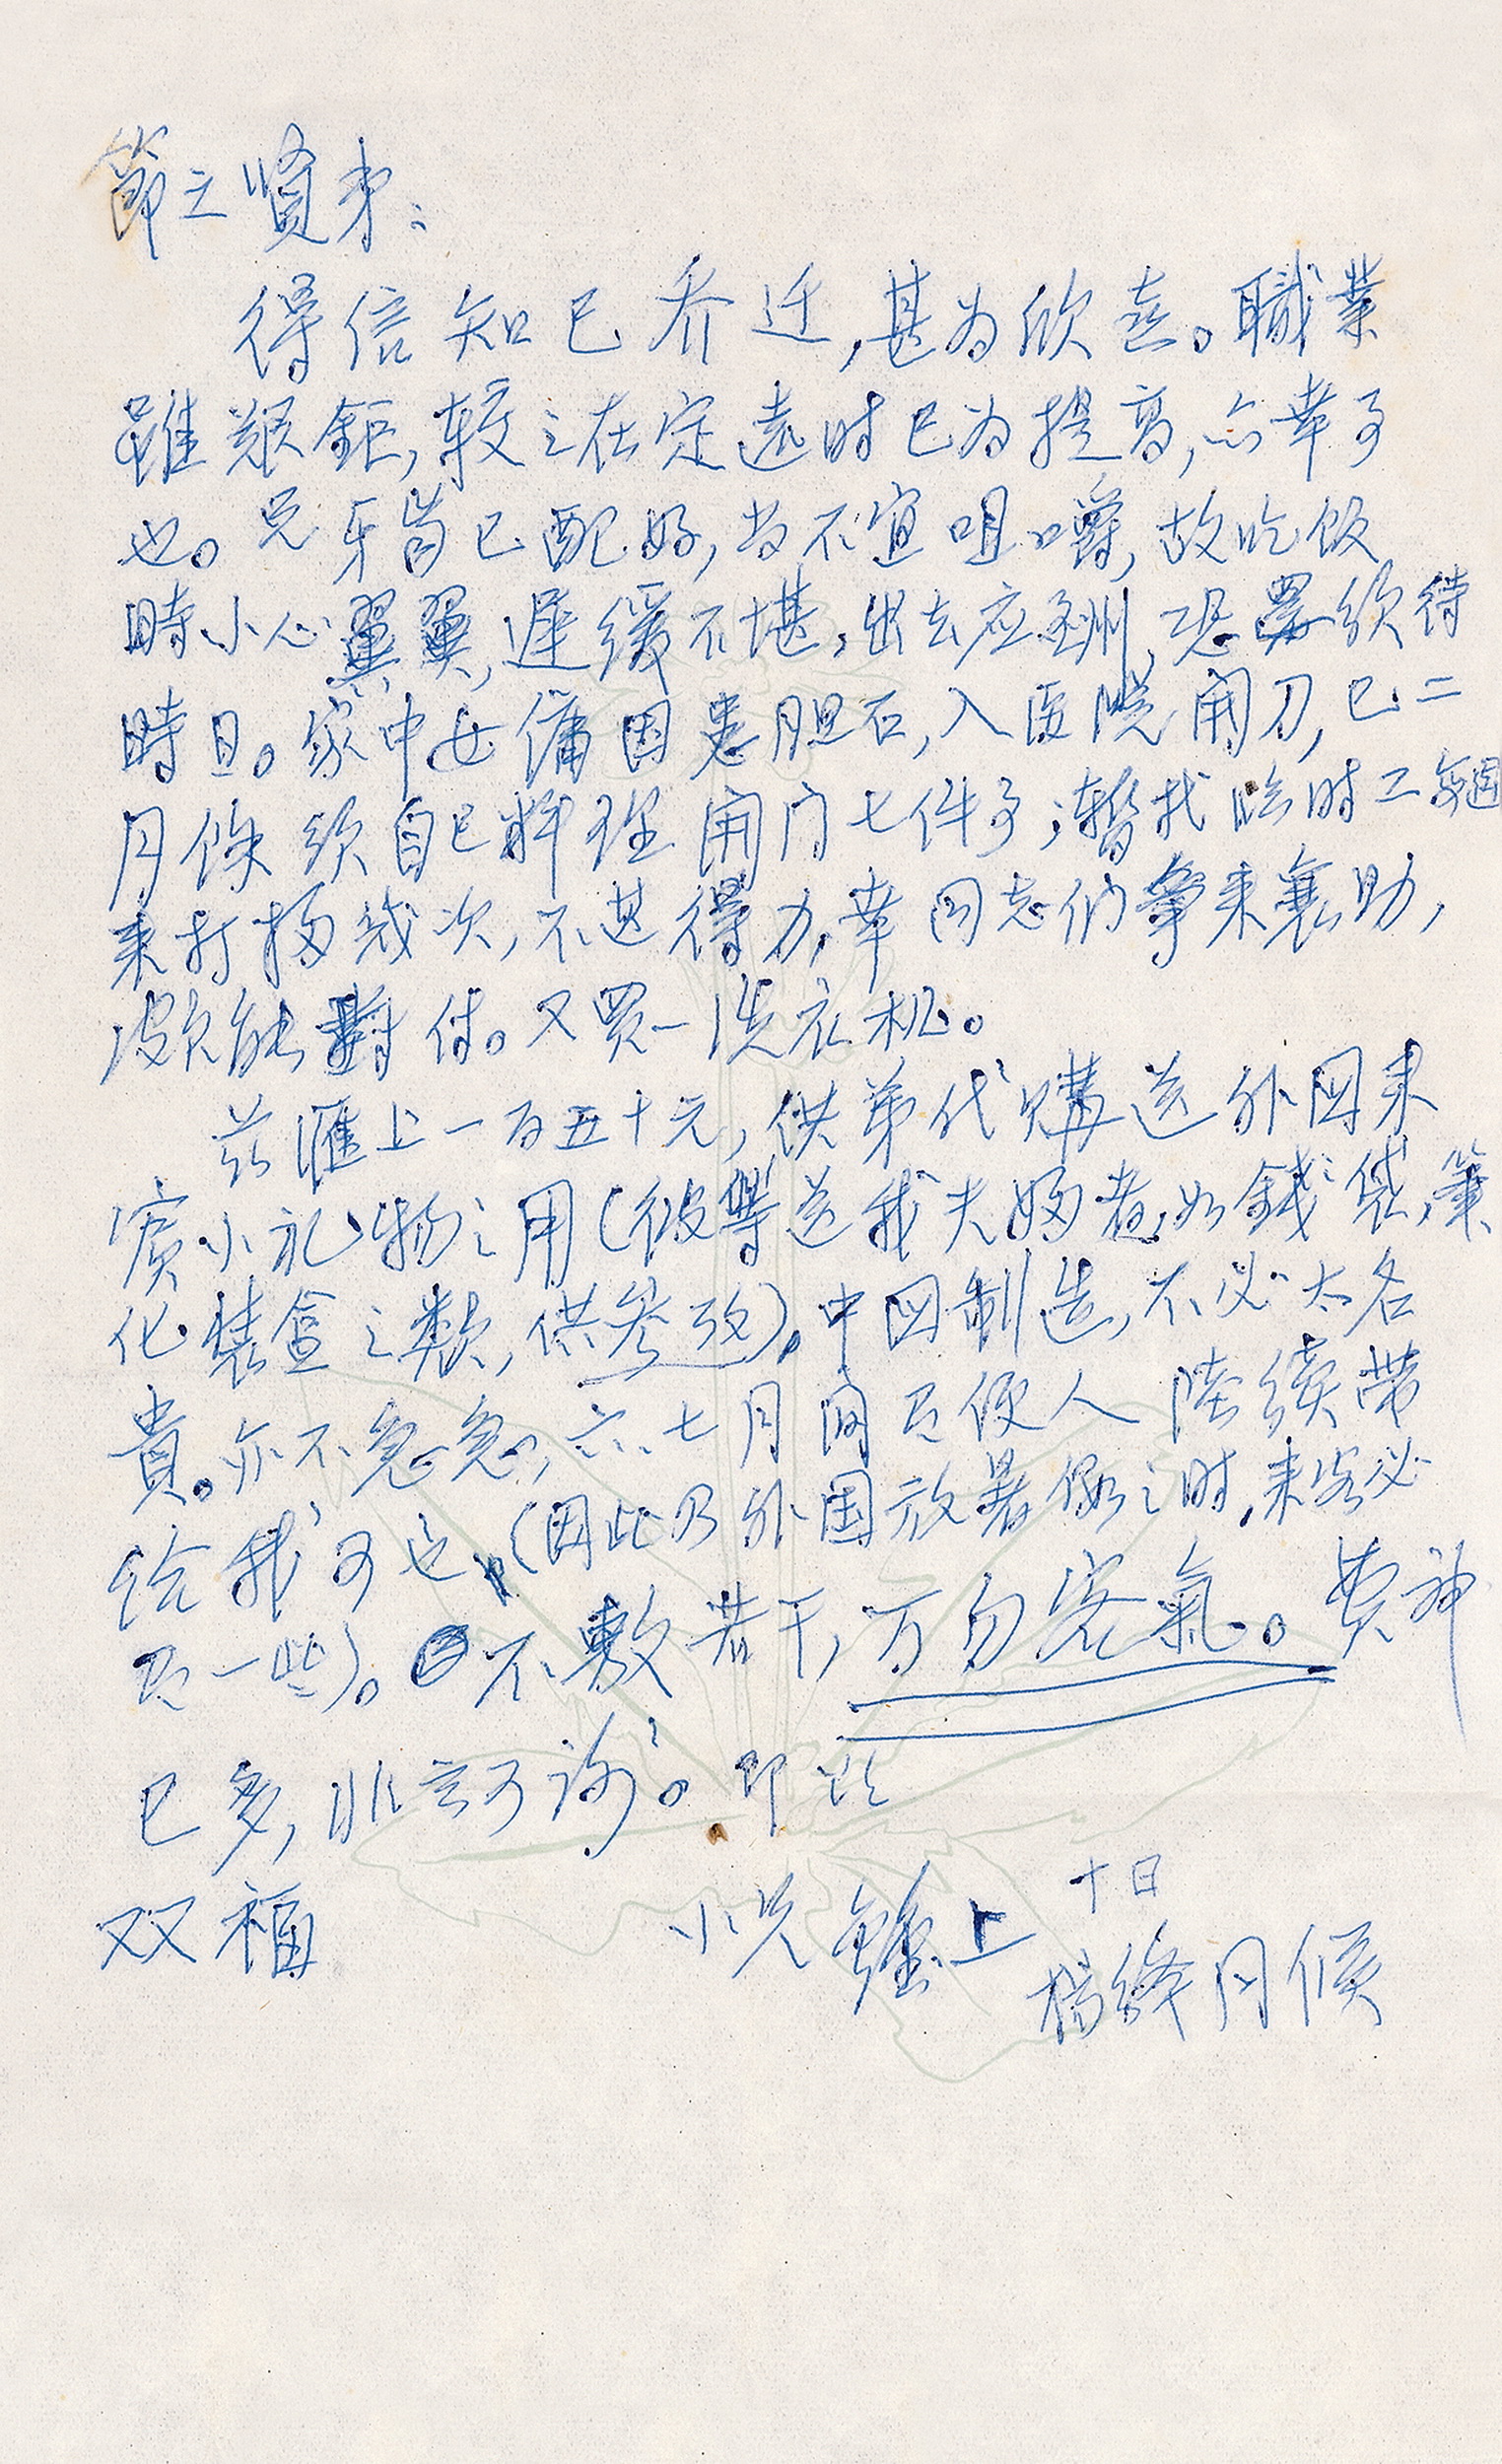 节之贤弟：
得信知已乔迁，甚为欣喜。職業
雖艱鉅，較之在定遠时已为提高，亦幸事
也。兄牙齿已配好，尚不宜咀嚼，故吃饭
時小心翼翼，遲緩不堪，出去应酬，恐須待
時日。家中女傭因患胆石，入医院開刀，已二
月餘，須自己料理開门七件事；暫找临时工
来打掃幾次，不甚得力，幸同志们争来襄助，
頗能對付。又買一洗衣机。
兹匯上一百五十元，供弟代購送外国来
賓小礼物之用（彼等送我夫婦者，如錢袋，筆，
化裝盒之類，供参攷）。中国制造，不必太名
貴。亦不急急，六、七月间有便人陸續带
给我可也，（因此乃外国放暑假之时，来客必
有一些）。不敷若干，万勿客氣。费神
已多，非言可谢。即颂
双福
小兄鍾上 十日
楊绛同候